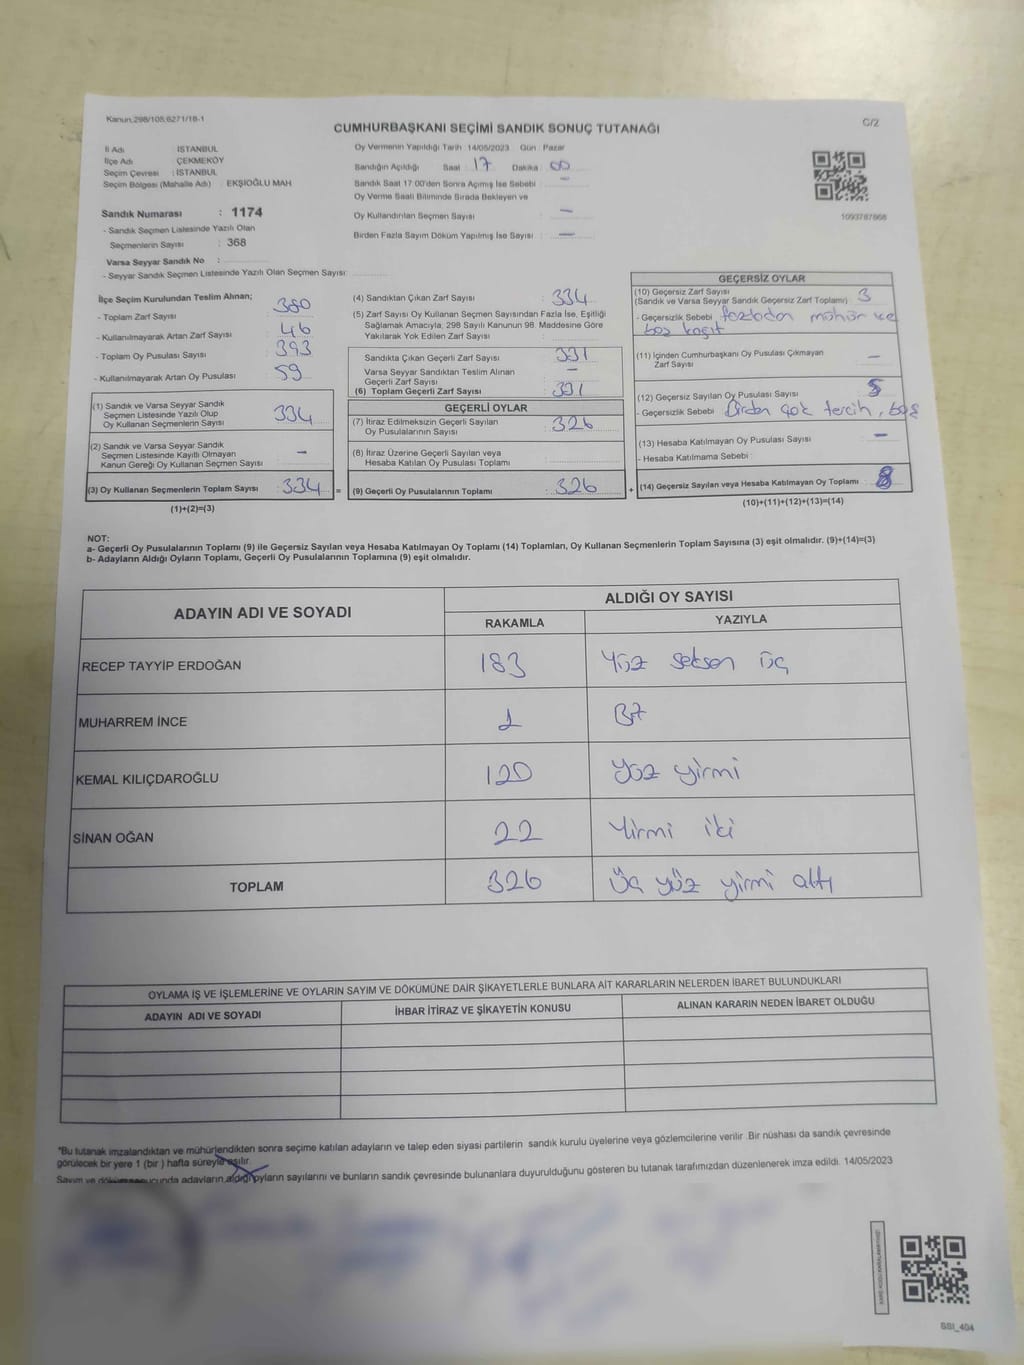 Kanun;298/105;6271/18-1
C/2
CUMHURBAŞKANI SEÇİMİ SANDIK SONUÇ TUTANAĞI
İl Adı : İSTANBUL
İlçe Adı : ÇEKMEKÖY
Seçim Çevresi : İSTANBUL
Seçim Bölgesi (Mahalle Adı) : EKŞİOĞLU MAH
Sandık Numarası : 1174
- Sandık Seçmen Listesinde Yazılı Olan
Seçmenlerin Sayısı : 368
Varsa Seyyar Sandık No :
- Seyyar Sandık Seçmen Listesinde Yazılı Olan Seçmen Sayısı:
Oy Vermenin Yapıldığı Tarih 14/05/2023 Gün : Pazar
Sandığın Açıldığı Saat : 17 Dakika : 00
Sandık Saat 17:00'den Sonra Açımış İse Sebebi : —
Oy Verme Saati Bitiminde Sırada Bekleyen ve
Oy Kullandırılan Seçmen Sayısı : —
Birden Fazla Sayım Döküm Yapılmış İse Sayısı : —
1093787868
İlçe Seçim Kurulundan Teslim Alınan;
- Toplam Zarf Sayısı : 380
- Kullanılmayarak Artan Zarf Sayısı : 46
- Toplam Oy Pusulası Sayısı : 393
- Kullanılmayarak Artan Oy Pusulası : 59
(1) Sandık ve Varsa Seyyar Sandık
Seçmen Listesinde Yazılı Olup
Oy Kullanan Seçmenlerin Sayısı : 334
(2) Sandık ve Varsa Seyyar Sandık
Seçmen Listesinde Kayıtlı Olmayan
Kanun Gereği Oy Kullanan Seçmen Sayısı : —
(3) Oy Kullanan Seçmenlerin Toplam Sayısı : 334 =
(1)+(2)=(3)
(4) Sandıktan Çıkan Zarf Sayısı : 334
(5) Zarf Sayısı Oy Kullanan Seçmen Sayısından Fazla İse, Eşitliği
Sağlamak Amacıyla, 298 Sayılı Kanunun 98. Maddesine Göre
Yakılarak Yok Edilen Zarf Sayısı :
Sandıkta Çıkan Geçerli Zarf Sayısı : 331
Varsa Seyyar Sandıktan Teslim Alınan
Geçerli Zarf Sayısı : —
(6) Toplam Geçerli Zarf Sayısı : 331
GEÇERLİ OYLAR
(7) İtiraz Edilmeksizin Geçerli Sayılan
Oy Pusulalarının Sayısı : 326
(8) İtiraz Üzerine Geçerli Sayılan veya
Hesaba Katılan Oy Pusulası Toplamı :
(9) Geçerli Oy Pusulalarının Toplamı : 326 +
GEÇERSİZ OYLAR
(10) Geçersiz Zarf Sayısı
(Sandık ve Varsa Seyyar Sandık Geçersiz Zarf Toplamı) : 3
- Geçersizlik Sebebi : fazladan mühür ve
boş kağıt
(11) İçinden Cumhurbaşkanı Oy Pusulası Çıkmayan
Zarf Sayısı : —
(12) Geçersiz Sayılan Oy Pusulası Sayısı : 5
- Geçersizlik Sebebi : Birden çok tercih, boş
(13) Hesaba Katılmayan Oy Pusulası Sayısı : —
- Hesaba Katılmama Sebebi :
(14) Geçersiz Sayılan veya Hesaba Katılmayan Oy Toplamı : 8
(10)+(11)+(12)+(13)=(14)
NOT:
a- Geçerli Oy Pusulalarının Toplamı (9) ile Geçersiz Sayılan veya Hesaba Katılmayan Oy Toplamı (14) Toplamları, Oy Kullanan Seçmenlerin Toplam Sayısına (3) eşit olmalıdır. (9)+(14)=(3)
b- Adayların Aldığı Oyların Toplamı, Geçerli Oy Pusulalarının Toplamına (9) eşit olmalıdır.
ADAYIN ADI VE SOYADI
ALDIĞI OY SAYISI
RAKAMLA YAZIYLA
RECEP TAYYİP ERDOĞAN 183 Yüz seksen üç
MUHARREM İNCE 1 Bir
KEMAL KILIÇDAROĞLU 120 yüz yirmi
SİNAN OĞAN 22 Yirmi iki
TOPLAM 326 Üç yüz yirmi altı
OYLAMA İŞ VE İŞLEMLERİNE VE OYLARIN SAYIM VE DÖKÜMÜNE DAİR ŞİKAYETLERLE BUNLARA AİT KARARLARIN NELERDEN İBARET BULUNDUKLARI
ADAYIN ADI VE SOYADI İHBAR İTİRAZ VE ŞİKAYETİN KONUSU ALINAN KARARIN NEDEN İBARET OLDUĞU
*Bu tutanak imzalandıktan ve mühürlendikten sonra seçime katılan adayların ve talep eden siyasi partilerin sandık kurulu üyelerine veya gözlemcilerine verilir. Bir nüshası da sandık çevresinde
görülecek bir yere 1 (bir ) hafta süreyle asılır.
Sayım ve döküm sonucunda adayların aldığı oyların sayılarını ve bunların sandık çevresinde bulunanlara duyurulduğunu gösteren bu tutanak tarafımızdan düzenlenerek imza edildi. 14/05/2023
SSI_404